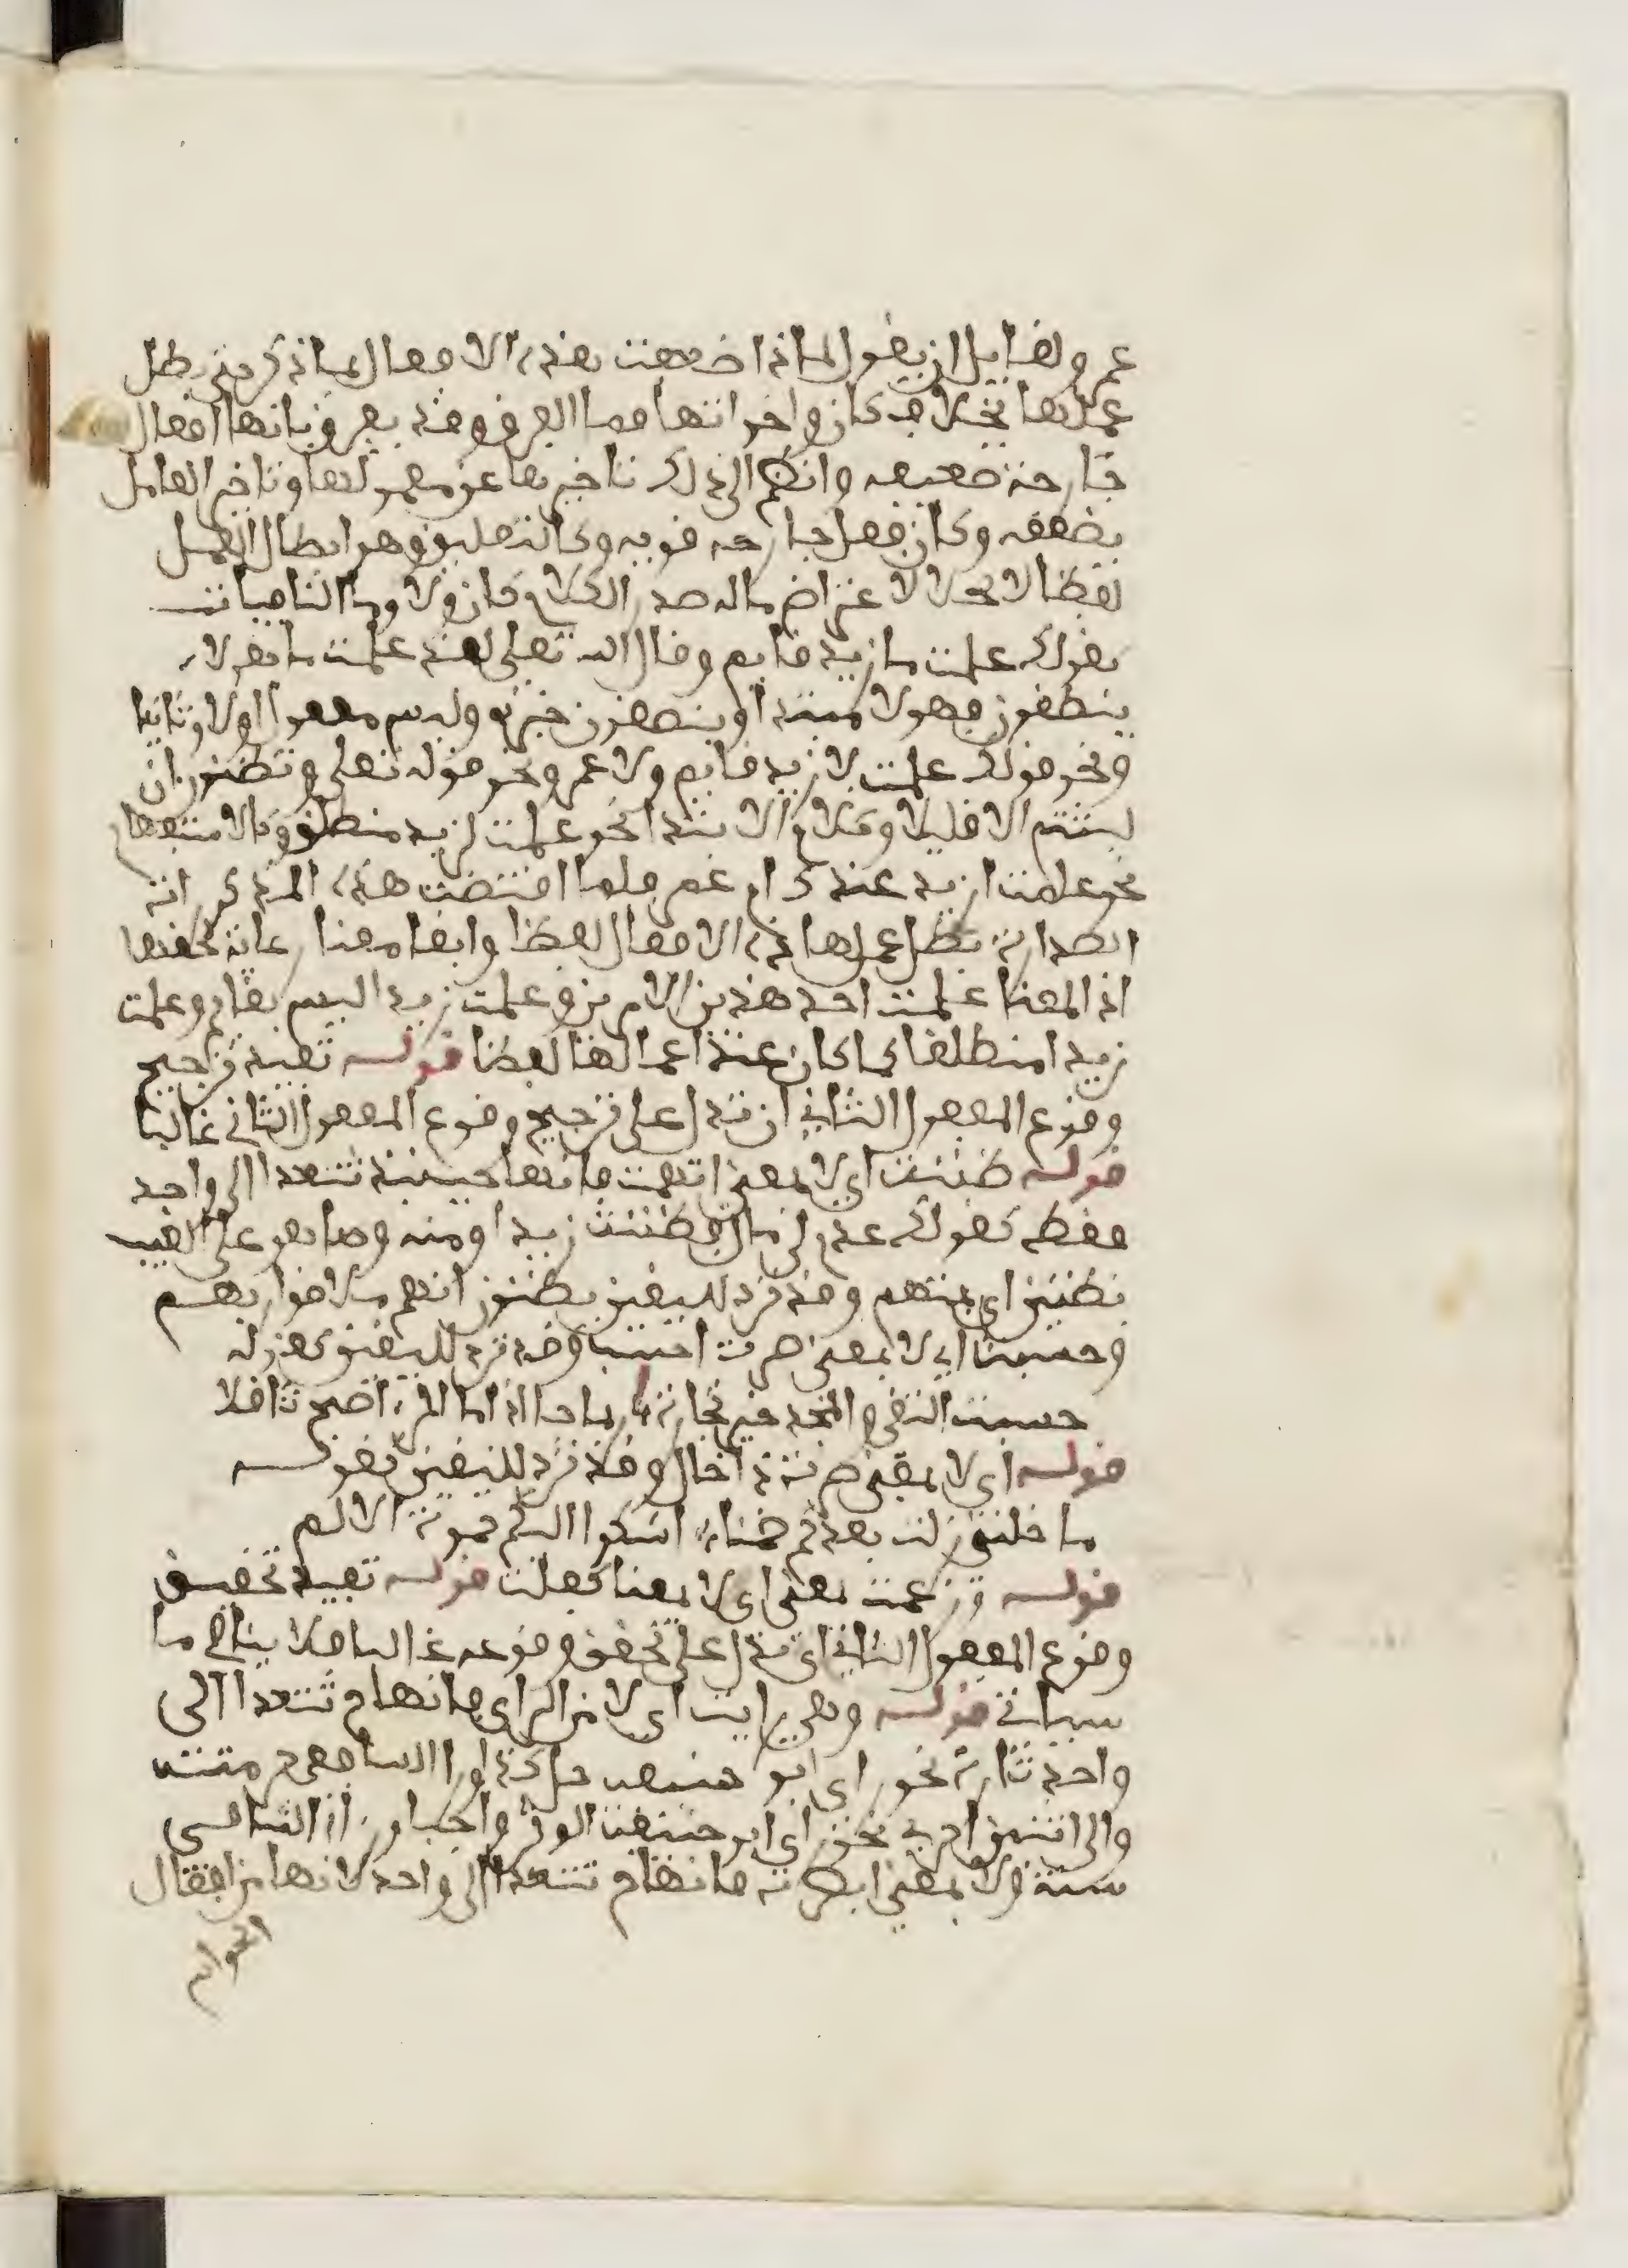 عمر ولقايل ان يقول لماذا ضعفت هذه الافعال لماذكر حتى بطل
عملها بخلاف كان واخواتها فما الفرق وقد يفرق بانها افعال
جارحة ضعيفه وانظم الى ذلك تاخيرها عن معمولها وتاخير العامل
يضعفه وكان فعل جارحه قويه وكالتعليق وهو ابطال العمل
لفظا لا محلا لاعتراض ماله صدر الكلام كان ولا وما النافيات
يقولك علمت ما زيد قايم وقال الله تعلى لقد علمت ما هولاء
ينطقون فهولا مبتدا وينطقون خبره وليس مفعولا اولا وثانيا
ونحو قولك علمت لا زيد قايم ولا عمر ونحو قوله تعلى وتظنون ان
لبثتم الا قليلا وكلام الابتدا نحو علمت لزيد منطلق وكالاستفهام
نحو علمت ازيد عندك ام عمر فلما اقتضت هذه المذكورات
الصدارة بطل عمل هاذه الافعال لفظا وابقا معنا رعاية لحقها
اذ المعنا علمت احد هذين الامرين وعلمت زيد اليس بقايم وعلمت
زيد امنطلقا كما كان عند اعمالها لفظا قوله تفيد ترجيح
وقوع المفعول الثاني ان تدل على ترجيح وقوع المفعول الثاني غالبا
قوله ظننت اي لا بمعنى اتهمت فانها حينئذ تتعدا الى واحد
فقط كقولك عدم لي مال فظننت زيدا ومنه وما هو على الغيب
بظنين اي بمتهم وقد ترد لليقين يظنون انهم ملاقوا ربهم
وحسبت اي لا بمعنى صرت احسب وقد ترد لليقين كقوله
حسبت التقى والمجد خير تجارة رباحا اذا ما المرء اصبح ثاقلا
قوله اي لا بمعنى صرت ذا خال وقد ترد لليقين كقوله
ما خلتني زلت بعدكم ضمنا اشكوا اليكم حموة الالم
قوله وزعمت بمعنى اي لا بمعنا كفلت قوله تفيد تحقيق
وقوع المفعول الثاني اي تدل على تحقق وقوعه غالبا فلا ينافي ما
سياتي قوله وهي رايت اي لا من الراي فانها تتعدا الى
واحد تارة نحو راى ابو حنيفه حل كذا وراا الشافعي حرمته
والى اثنين اخرى نحو راى ابو حنيفت الوتر واجبا وراا الشافعي
سنة ولا بمعنى ابصرته فانها تتعدا الى واحد لانها من افعال
الحواس